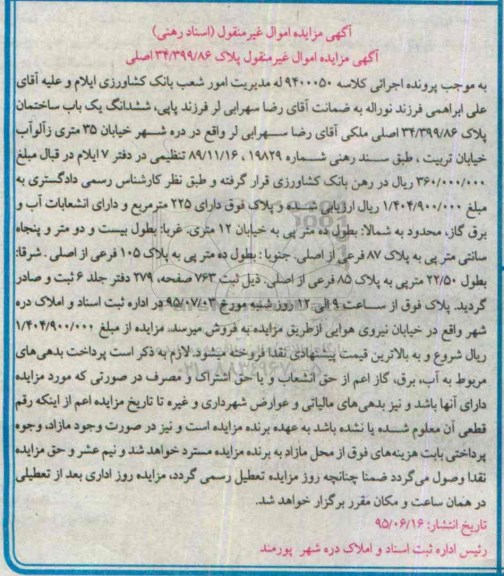 آگهی مزایده اموال غیرمنقول (اسناد رهنی)
آگهی مزایده اموال غیرمنقول پلاک ۳۴/۳۹۹/۸۶ اصلی
به موجب پرونده اجرائی کلاسه ۹۴۰۰۰۵۰ له مدیریت امور شعب بانک کشاورزی ایلام و علیه آقای
علی ابراهمی فرزند نوراله به ضمانت آقای رضا سهرابی لر فرزند پاپی، ششدانگ یک باب ساختمان
پلاک ۳۴/۳۹۹/۸۶ اصلی ملکی آقای رضا سهرابی لر واقع در دره شهر خیابان ۳۵ متری زآلوآب
خیابان تربیت ، طبق سند رهنی شماره ۱۹۸۲۹ ، ۸۹/۱۱/۱۶ تنظیمی در دفتر ۷ ایلام در قبال مبلغ
۳۶۰/۰۰۰/۰۰۰ ریال در رهن بانک کشاورزی قرار گرفته و طبق نظر کارشناس رسمی دادگستری به
مبلغ ۱/۴۰۴/۹۰۰/۰۰۰ ریال ارزیابی شده و پلاک فوق دارای ۲۲۵ مترمربع و دارای انشعابات آب و
برق گاز، محدود به شمالا: بطول ده متر پی به خیابان ۱۲ متری. غربا: بطول بیست و دو متر و پنجاه
سانتی متر پی به پلاک ۸۷ فرعی از اصلی. جنوبا : بطول ده متر پی به پلاک ۱۰۵ فرعی از اصلی . شرقا:
بطول ۲۲/۵۰ مترپی به پلاک ۸۵ فرعی از اصلی. ذیل ثبت ۷۶۳ صفحه، ۲۷۹ دفتر جلد ۶ ثبت و صادر
گردید. پلاک فوق از ساعت ۹ الی ۱۲ روز شنبه مورخ ۹۵/۰۷/۰۳ در اداره ثبت اسناد و املاک دره
شهر واقع در خیابان نیروی هوایی ازطریق مزایده به فروش میرسد. مزایده از مبلغ ۱/۴۰۴/۹۰۰/۰۰۰
ریال شروع و به بالاترین قیمت پیشنهادی نقدا فروخته میشود. لازم به ذکر است پرداخت بدهی های
مربوط به آب، برق، گاز اعم از حق انشعاب و یا حق اشتراک و مصرف در صورتی که مورد مزایده
دارای آنها باشد و نیز بدهی های مالیاتی و عوارض شهرداری و غیره تا تاریخ مزایده اعم از اینکه رقم
قطعی آن معلوم شده یا نشده باشد به عهده برنده مزایده است و نیز در صورت وجود مازاد، وجوه
پرداختی بابت هزینه های فوق از محل مازاد به برنده مزایده مسترد خواهد شد و نیم عشر و حق مزایده
نقدا وصول می گردد ضمنا چنانچه روز مزایده تعطیل رسمی گردد، مزایده روز اداری بعد از تعطیلی
در همان ساعت و مکان مقرر برگزار خواهد شد.
تاریخ انتشار: ۹۵/۰۶/۱۶
رئیس اداره ثبت اسناد و املاک دره شهر پورمند